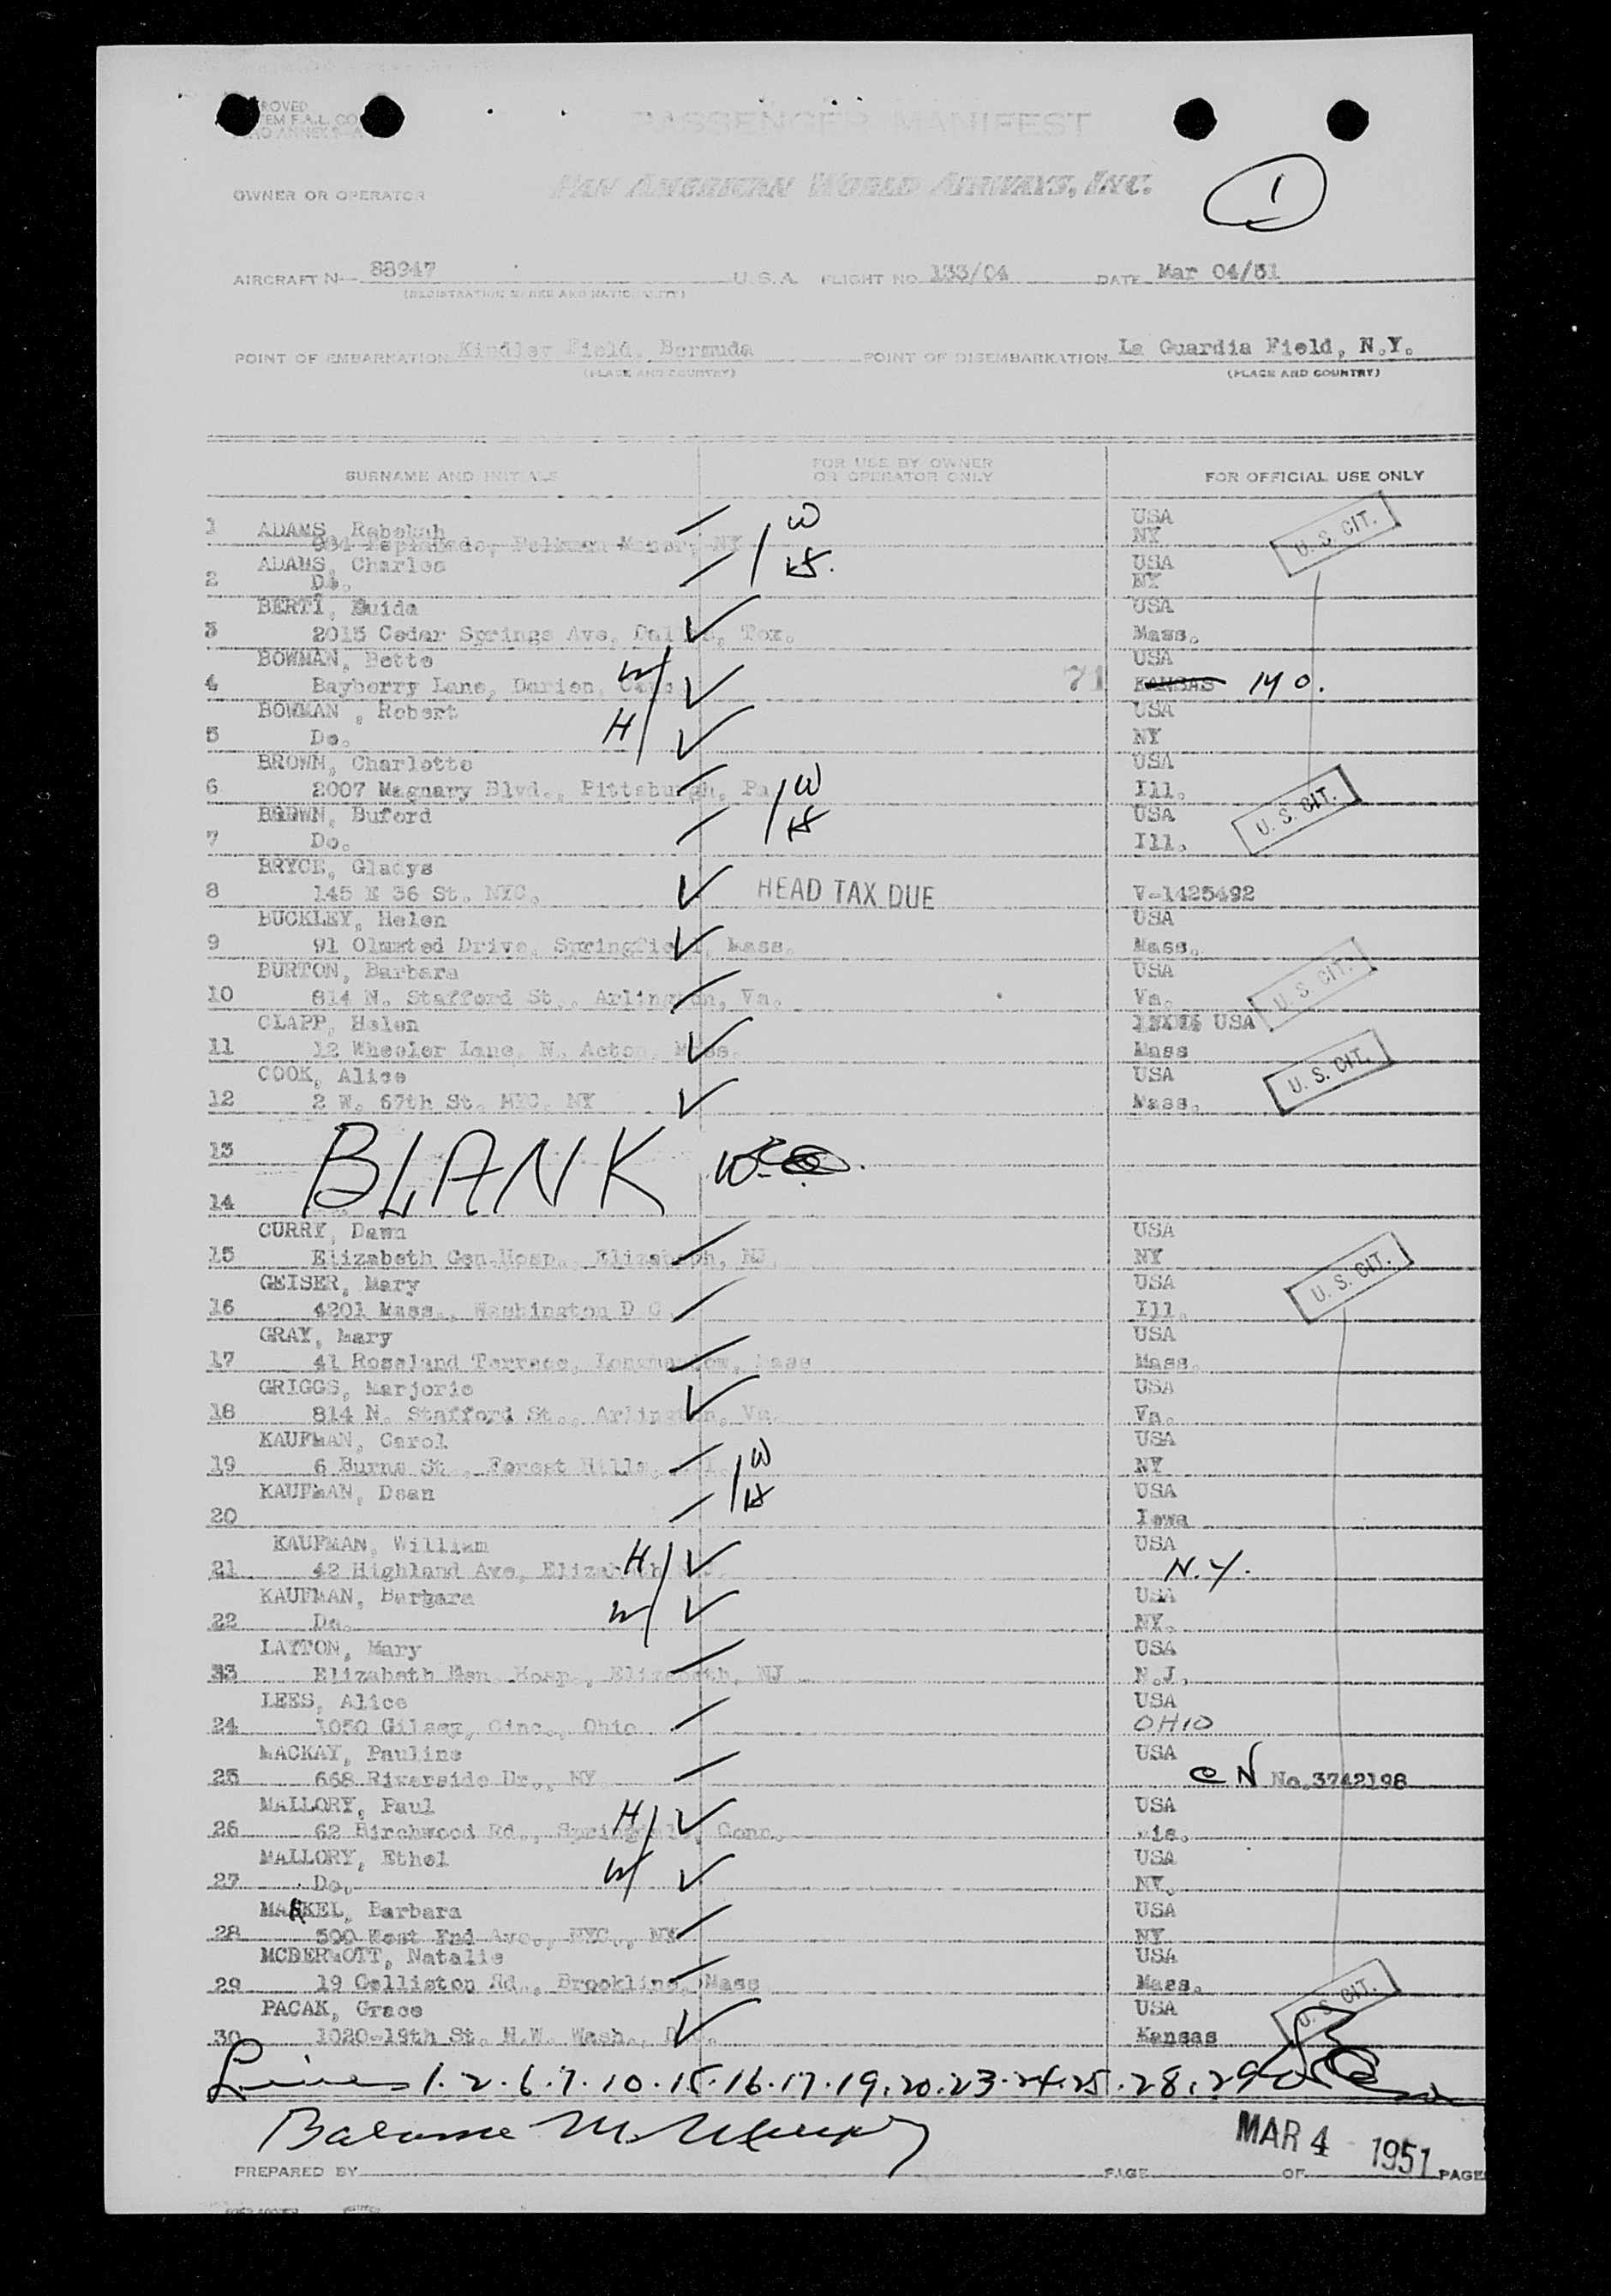 PASSENGER MANIFEST
OWNER OR OPERATOR PAN AMERICAN WORLD AIRWAYS, INC.
1
AIRCRAFT N- 88947 U.S.A. FLIGHT NO 133/04 DATE Mar 04/51
(REGISTRATION MARKS AND NATIONALITY)
POINT OF EMBARKATION Kindley Field, Bermuda POINT OF DISEMBARKATION La Guardia Field, N.Y.
(PLACE AND COUNTRY) (PLACE AND COUNTRY)
SURNAME AND INITIALS FOR USE BY OWNER OR OPERATOR ONLY FOR OFFICIAL USE ONLY
1 ADAMS, Rebekah W USA
Pelham Manor, NY NY U. S. CIT.
ADAMS, Charles H. USA
2 Do. NY
BERTI, USA
3 2015 Cedar Springs Ave, Dallas, Tex. Mass.
BOWMAN, Bette W USA
4 Bayberry Lane, Darien, Conn. 71 KANSAS MO.
BOWMAN , Robert H USA
5 Do. NY
BROWN, Charlotte W USA
6 2007 Magnary Blvd., Pittsburgh, Pa Ill.
BROWN, Buford H USA U. S. CIT.
7 Do. Ill.
BRYCE, Gladys
8 145 E 36 St. NYC. HEAD TAX DUE V-1425492
BUCKLEY, Helen USA
9 91 Olmsted Drive, Springfield, Mass. Mass.
BURTON, Barbara USA U. S. CIT.
10 814 N. Stafford St., Arlington, Va. Va.
CLAPP, Helen USA
11 12 Wheeler Lane, N. Acton, Mass. Mass
COOK, Alice USA U. S. CIT.
12 2 W. 67th St. NYC, NY Mass.
13
BLANK
14
CURRY, Dawn USA
15 Elizabeth Gen.Hosp., Elizabeth, NJ NY U. S. CIT.
GEISER, Mary USA
16 4201 Mass., Washington D C. Ill.
GRAY, Mary USA
17 41 Roseland Terrace, Longmeadow, Mass Mass.
GRIGGS, Marjorie USA
18 814 N. Stafford St., Arlington, Va. Va.
KAUFMAN, Carol W USA
19 6 Burns St., Forest Hills, NY
KAUFMAN, Dean H USA
20 Iowa
KAUFMAN, William H USA
21 42 Highland Ave, Elizabeth N.Y.
KAUFMAN, Barbara W USA
22 Do. NY.
LAYTON, Mary USA
Elizabeth Gen. Hosp., Elizabeth, NJ N.J.
LEES, Alice USA
24 1050 Cinc., Ohio OHIO
MACKAY, Pauline USA
25 668 Riverside Dr., NY CN No.3742198
MALLORY, Paul H USA
26 62 Birchwood Rd., Springdale, Conn. Wis.
MALLORY, Ethel W USA
27 Do. NY.
MARKEL, Barbara USA
28 500 West End Ave., NYC., NY NY
MCDERMOTT, Natalie USA
29 19 Colliston Rd., Brookline, Mass Mass.
PACAK, Grace USA U. S. CIT.
30 1020-19th St. N.W. Wash., D.C. Kansas
Lines 1.2.6.7.10.15.16.17.19.20.23.24.25.28.29
Balance
MAR 4 1951
PREPARED BY PAGE OF PAGE